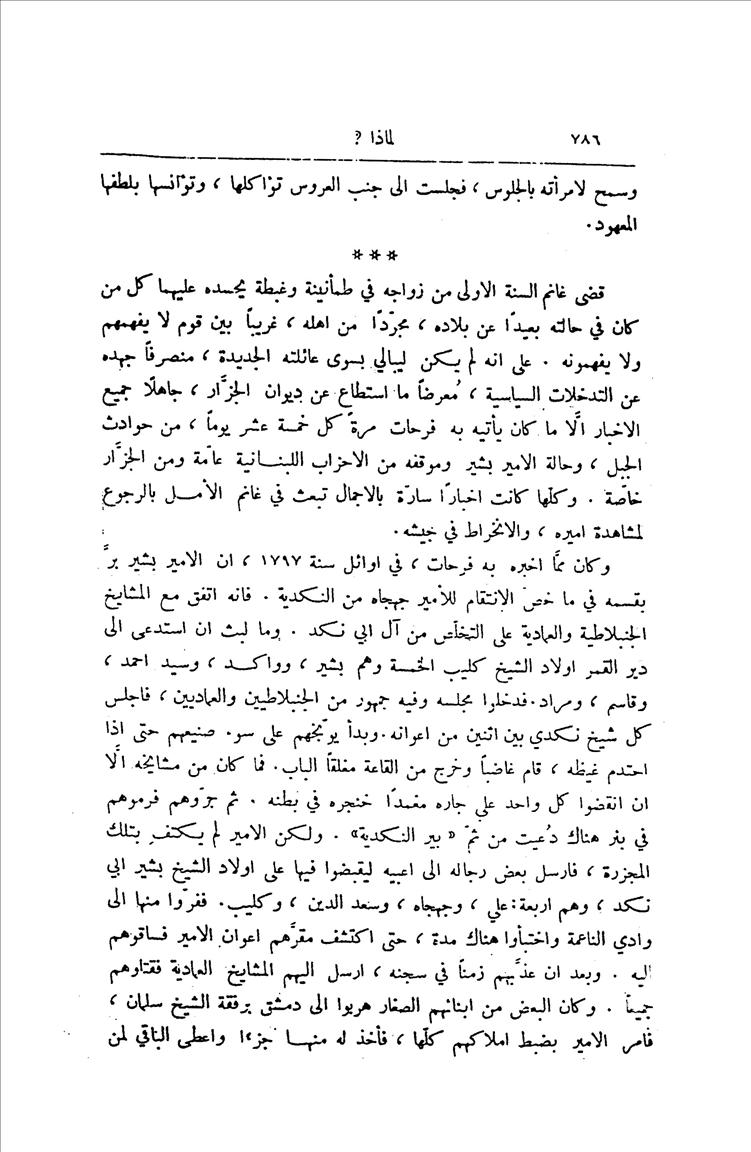 ٧٨٦ لماذا ?
وسمح لامرأته بالجلوس ، فجلست الى جنب العروس تؤاكلها ، وتؤانسها بلطفها
المعهود.
***
قضى غانم السنة الاولى من زواجه في طمأنينة وغبطة يحسده عليهما كل من
كان في حالته بعيدًا عن بلاده ، مجرّدًا من اهله ، غريباً بين قوم لا يفهمهم
ولا يفهمونه . على انه لم يكن ليبالي بسوى عائلته الجديدة ، منصرفاً جهده
عن التدخلات السياسية ، مُعرضاً ما استطاع عن ديوان الجزَّار ، جاهلًا جميع
الاخبار الَّا ما كان يأتيه به فرحات مرةً كل خمسة عشر يوماً ، من حوادث
الجبل ، وحالة الامير بشير وموقفه من الاحزاب اللبنانية عامّة ومن الجزَّار
خاصّة . وكلّها كانت اخبارًا سارّة بالاجمال تبعث في غانم الأمل بالرجوع
لمشاهدة اميره ، والانخراط في جيشه.
وكان ممَّا اخبره به فرحات ، في اوائل سنة ١٧٩٧ ، ان الامير بشير برَّ
بقسمه في ما خصّ الإنتقام للأمير جهجاه من النكدية . فانه اتفق مع المشايخ
الجنبلاطية والعمادية على التخلّص من آل ابي نكد . وما لبث ان استدعى الى
دير القمر اولاد الشيخ كليب الخمسة وهم بشير ، وواكد ، وسيد احمد ،
وقاسم ، ومراد.فدخلوا مجلسه وفيه جمهور من الجنبلاطيين والعماديين ، فاجلس
كل شيخ نكدي بين اثنين من اعوانه.وبدأ يوبّخهم على سوء صنيعهم حتى اذا
احتدم غيظه ، قام غاضباً وخرج من القاعة مغلقاً الباب. فما كان من مشايخه الَّا
ان انقضوا كل واحد على جاره مغمدًا خنجره في بطنه . ثم جرّوهم فرموهم
في بئر هناك دُعيت من ثمّ « بير النكدية» . ولكن الامير لم يكتفِ بتلك
المجزرة ، فارسل بعض رجاله الى اعبيه ليقبضوا فيها على اولاد الشيخ بشير ابي
نكد ، وهم اربعة:علي ، وجهجاه ، وسعد الدين ، وكليب. ففرّوا منها الى
وادي الناعمة واختبأوا هناك مدة ، حتى اكتشف مقرَّهم اعوان الامير فساقوهم
اليه . وبعد ان عذَّبهم زمناً في سجنه ، ارسل اليهم المشايخ العمادية فقتلوهم
جميعاً . وكان البعض من ابنائهم الصغار هربوا الى دمشق برفقة الشيخ سلمان ،
فامر الامير بضبط املاكهم كلّها ، فأخذ له منها جزءًا واعطى الباقي لمن